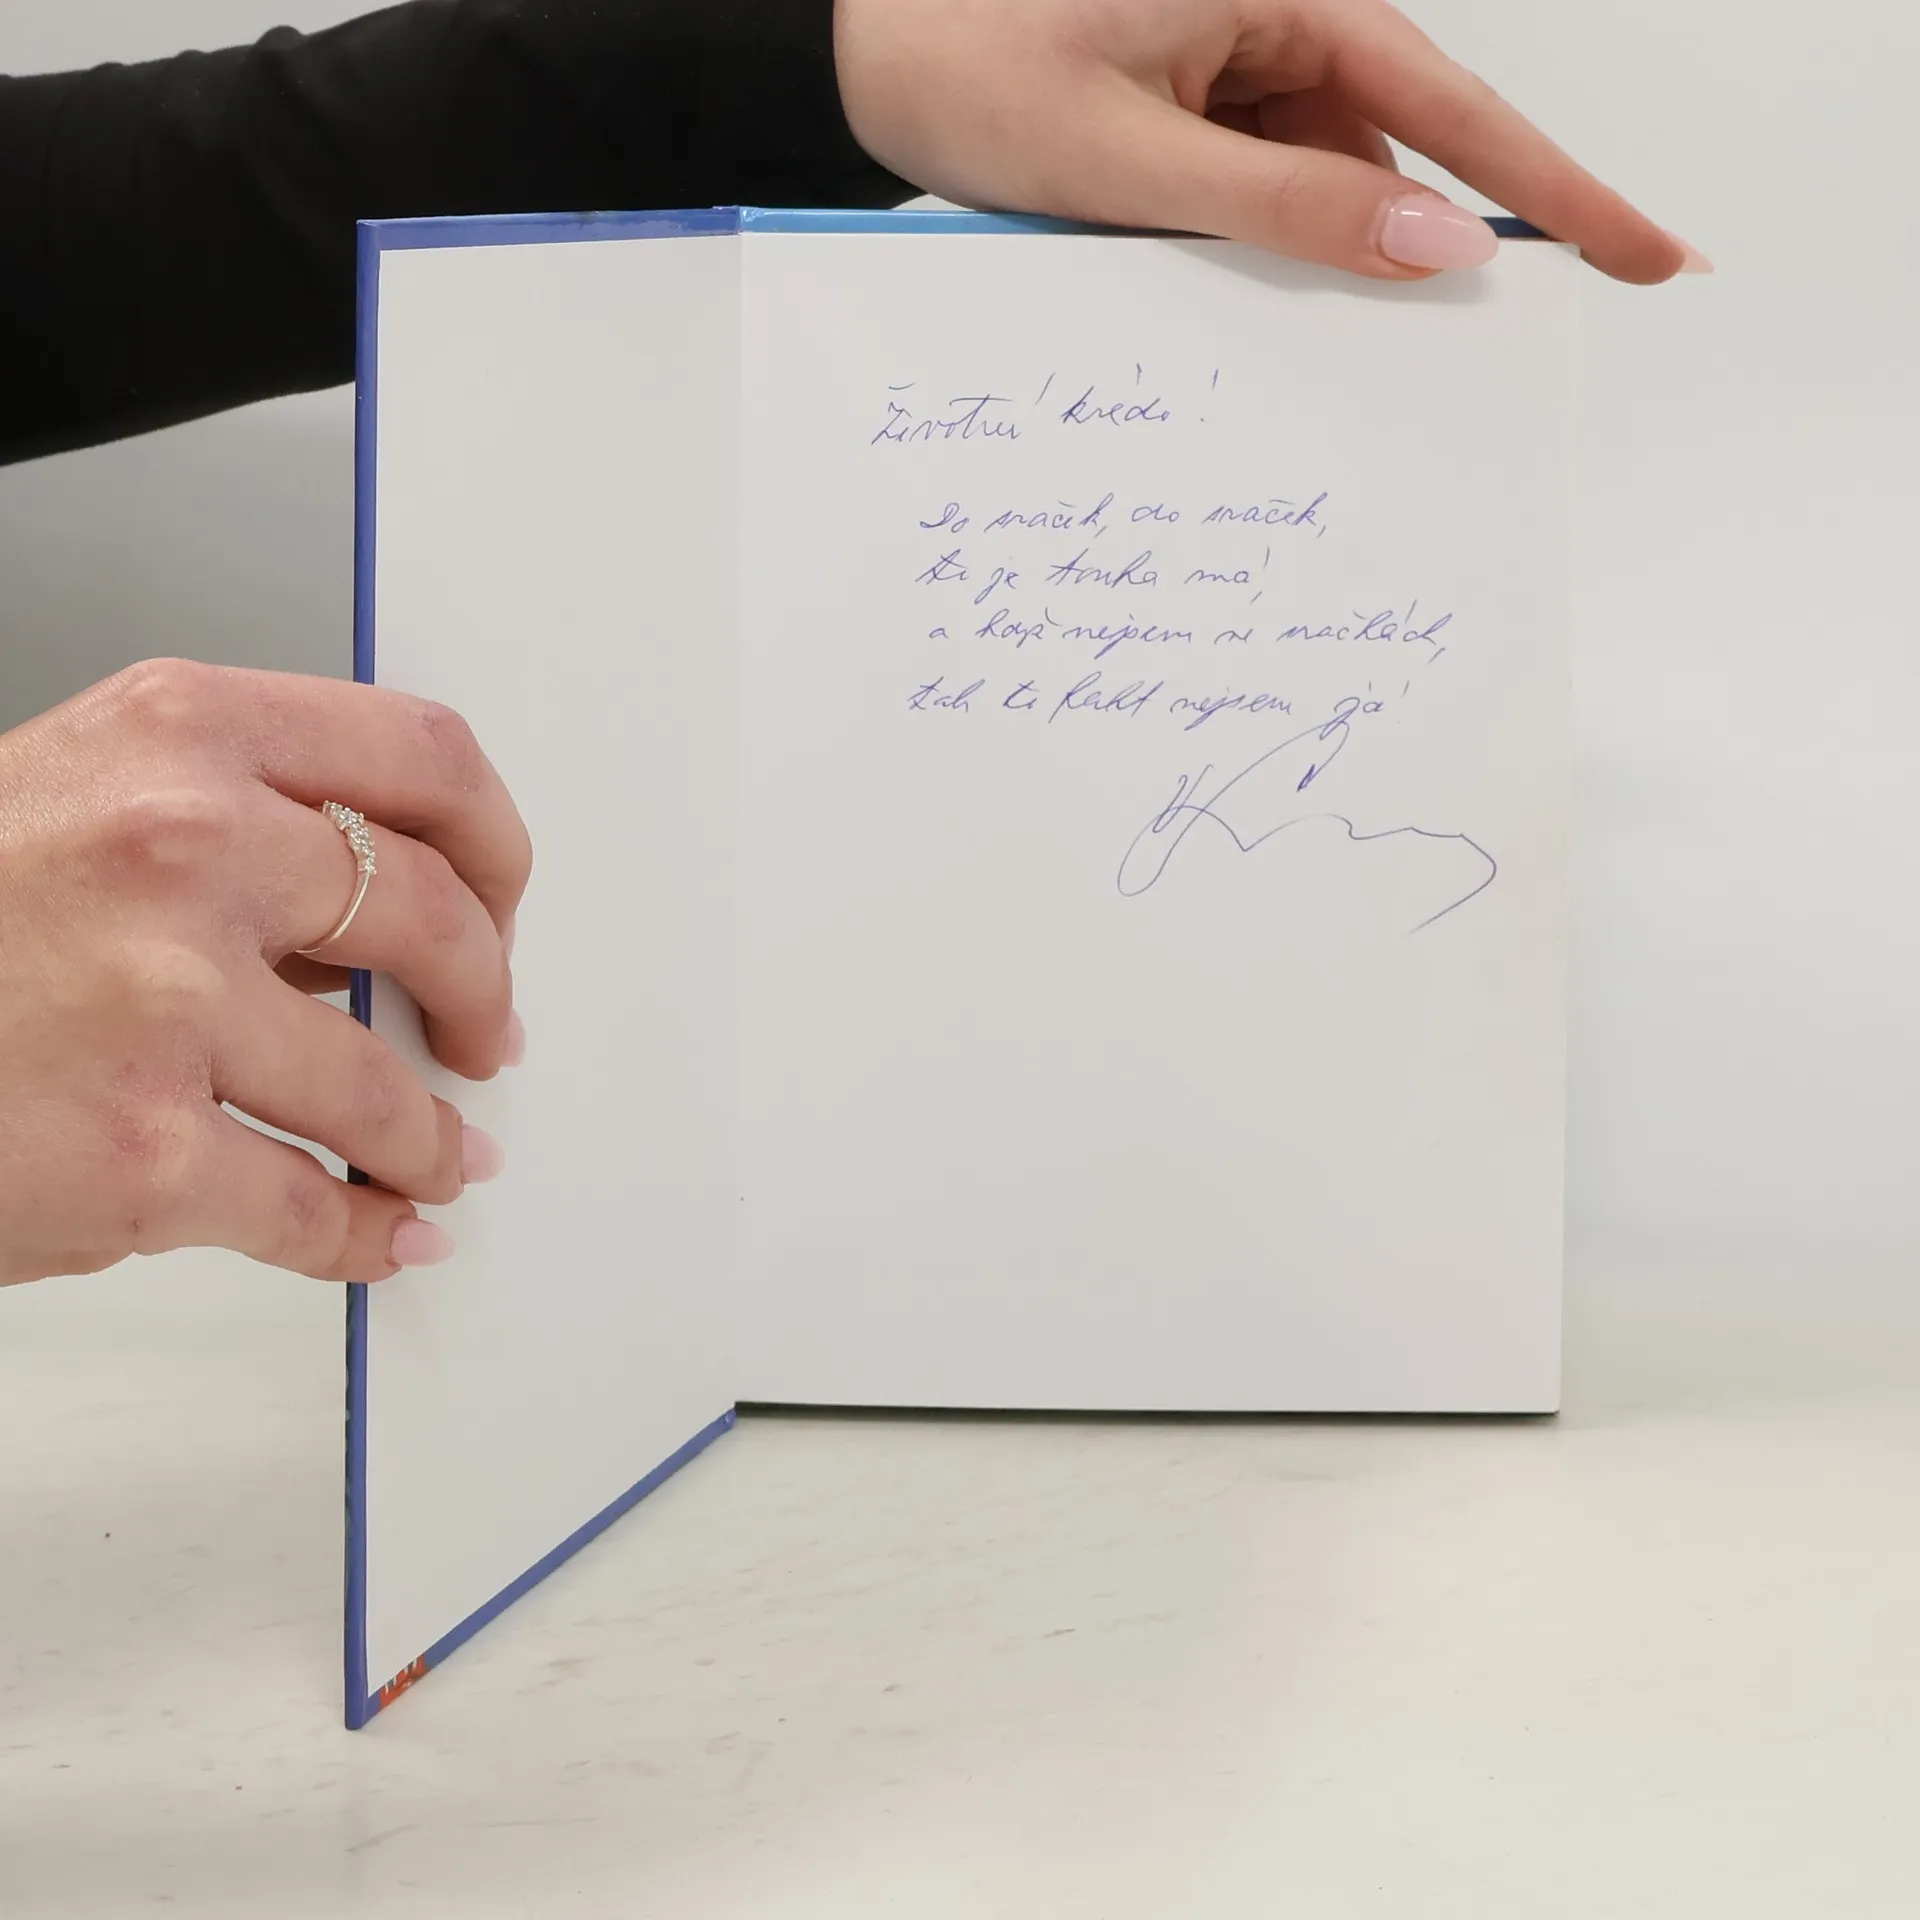 Životní krédo!
Do sraček, do sraček,
to je touha má,
a když nejsem ve sračkách,
tak to fakt nejsem já!